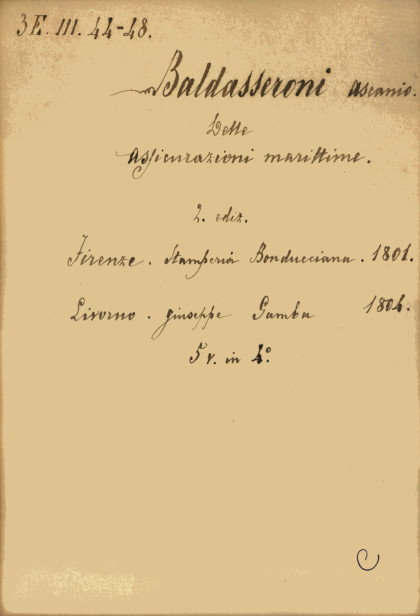 3 E. III. 44-48.
Baldasseroni Ascanio.
Delle
assicurazioni marittime.
2. ediz.
Firenze. Stamperia Bonducciana. 1801.
Livorno. Giuseppe Gamba 1804.
5 v. in 4º.
C